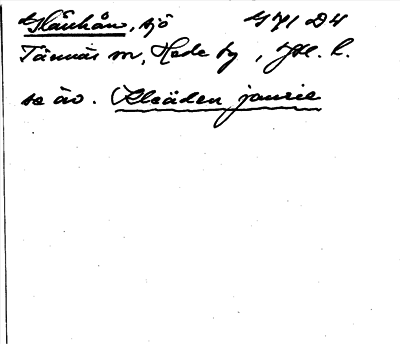 Flånhån, sjö G 71 D4
Tännäs sn, Hede tg, Jtl. l.
se äv. Kleäden jaurie